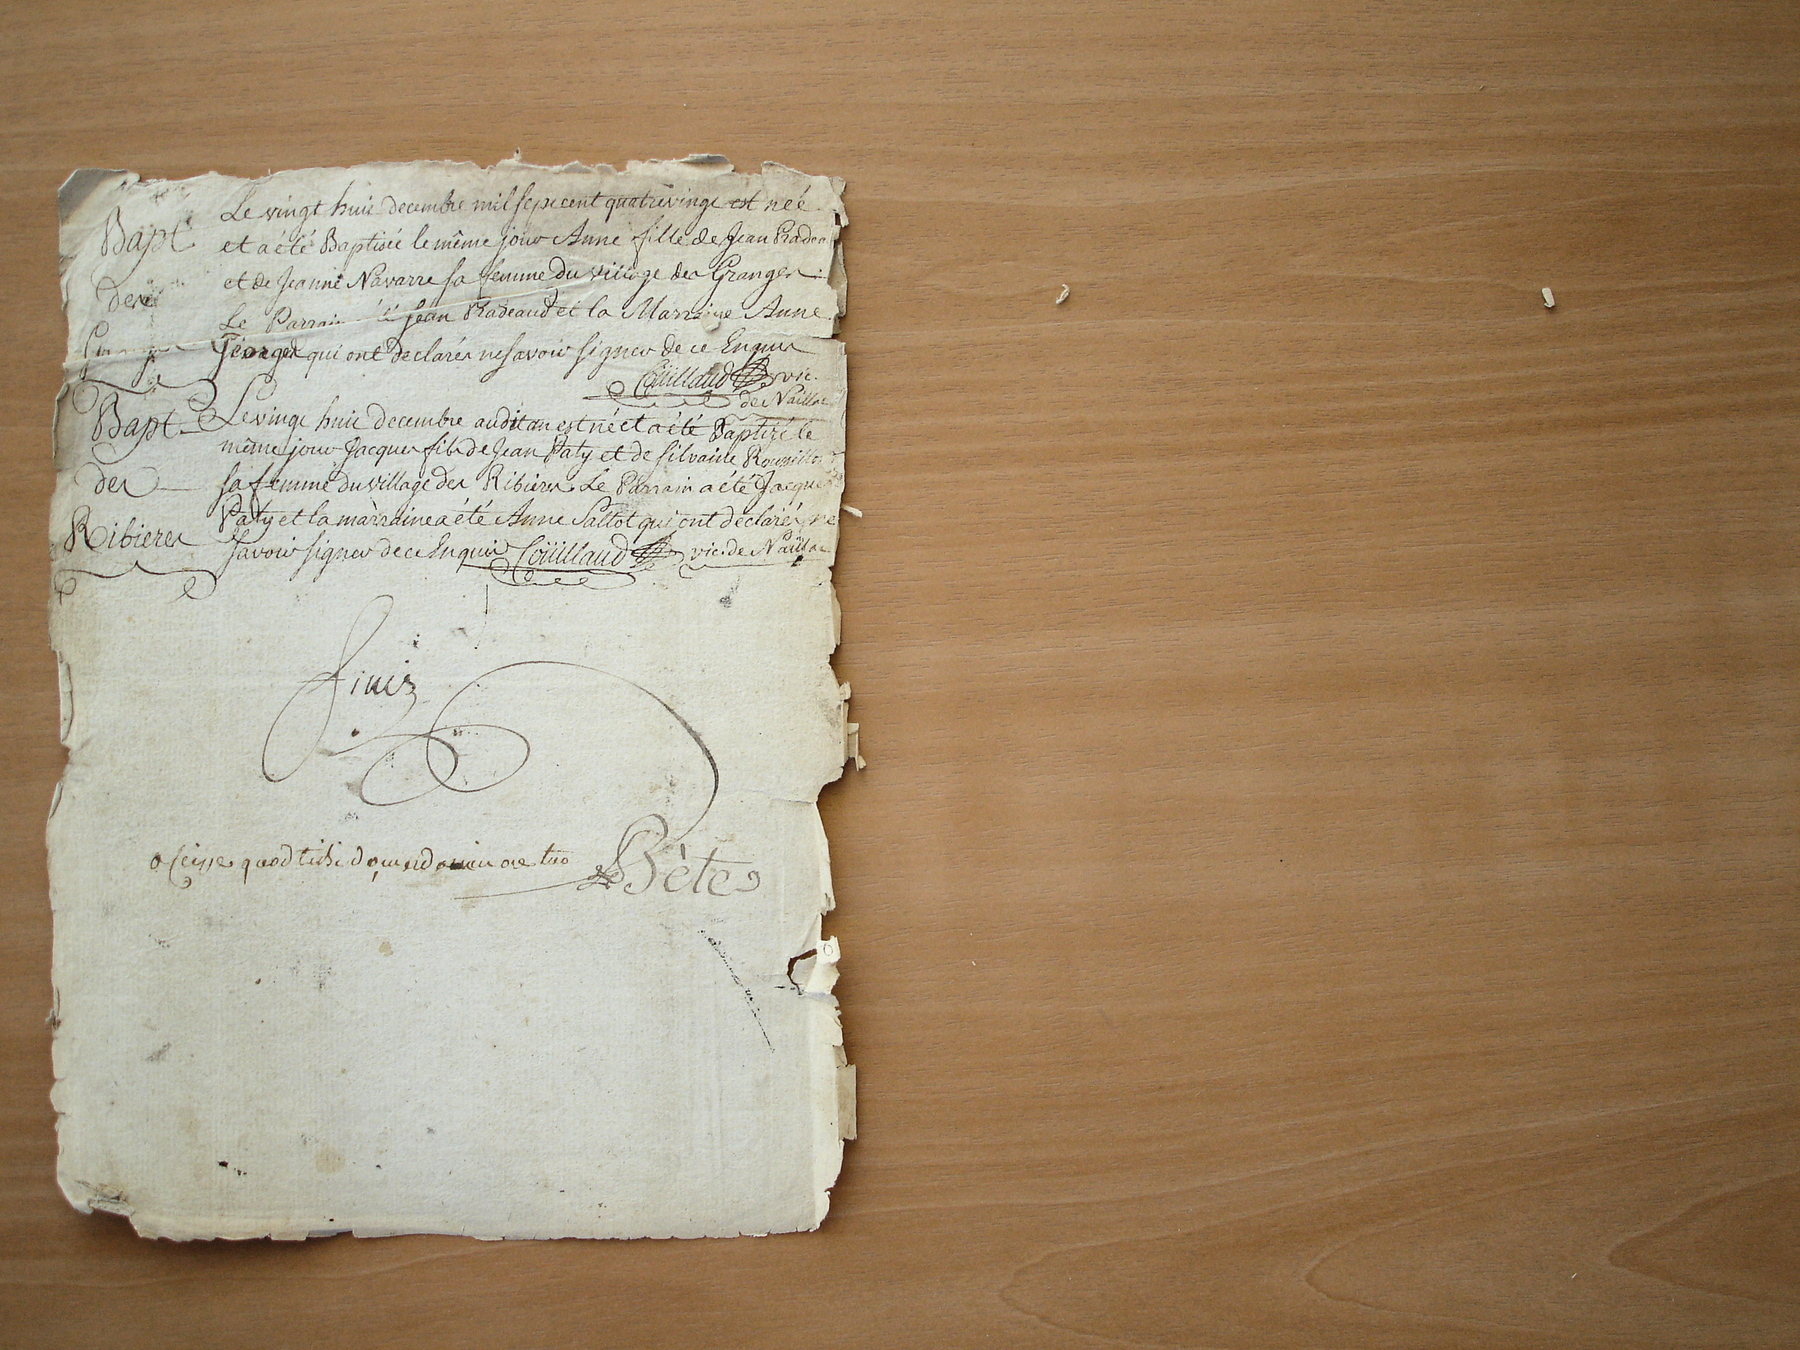 Bapt
des
Granges
Le vingt huit decembre mil sept cent quatrevingt est neé
et a été Baptisée le même jour Anne fille de Jean Radea
et de Jeanne Navarre sa femme du village des Granges
Le Parrain été Jean Radeaud et la Marraine Anne
Georges qui ont declarés ne savoir signer de ce Enquis
Coüillaud vic.
de Naillac
Bapt
des
Ribieres
Le vingt huit decembre audit an est né et a été Baptizé le
même jour Jacques fils de Jean Paty et de Silvaine
sa femme du village des Ribieres Le Parrain a été Jacques
Paty et la marraine a été Anne Saltot qui ont déclarés ne
savoir signer de ce Enquis Coüillaud vic. de Naillac
finis
quod tibi tuo
Bète